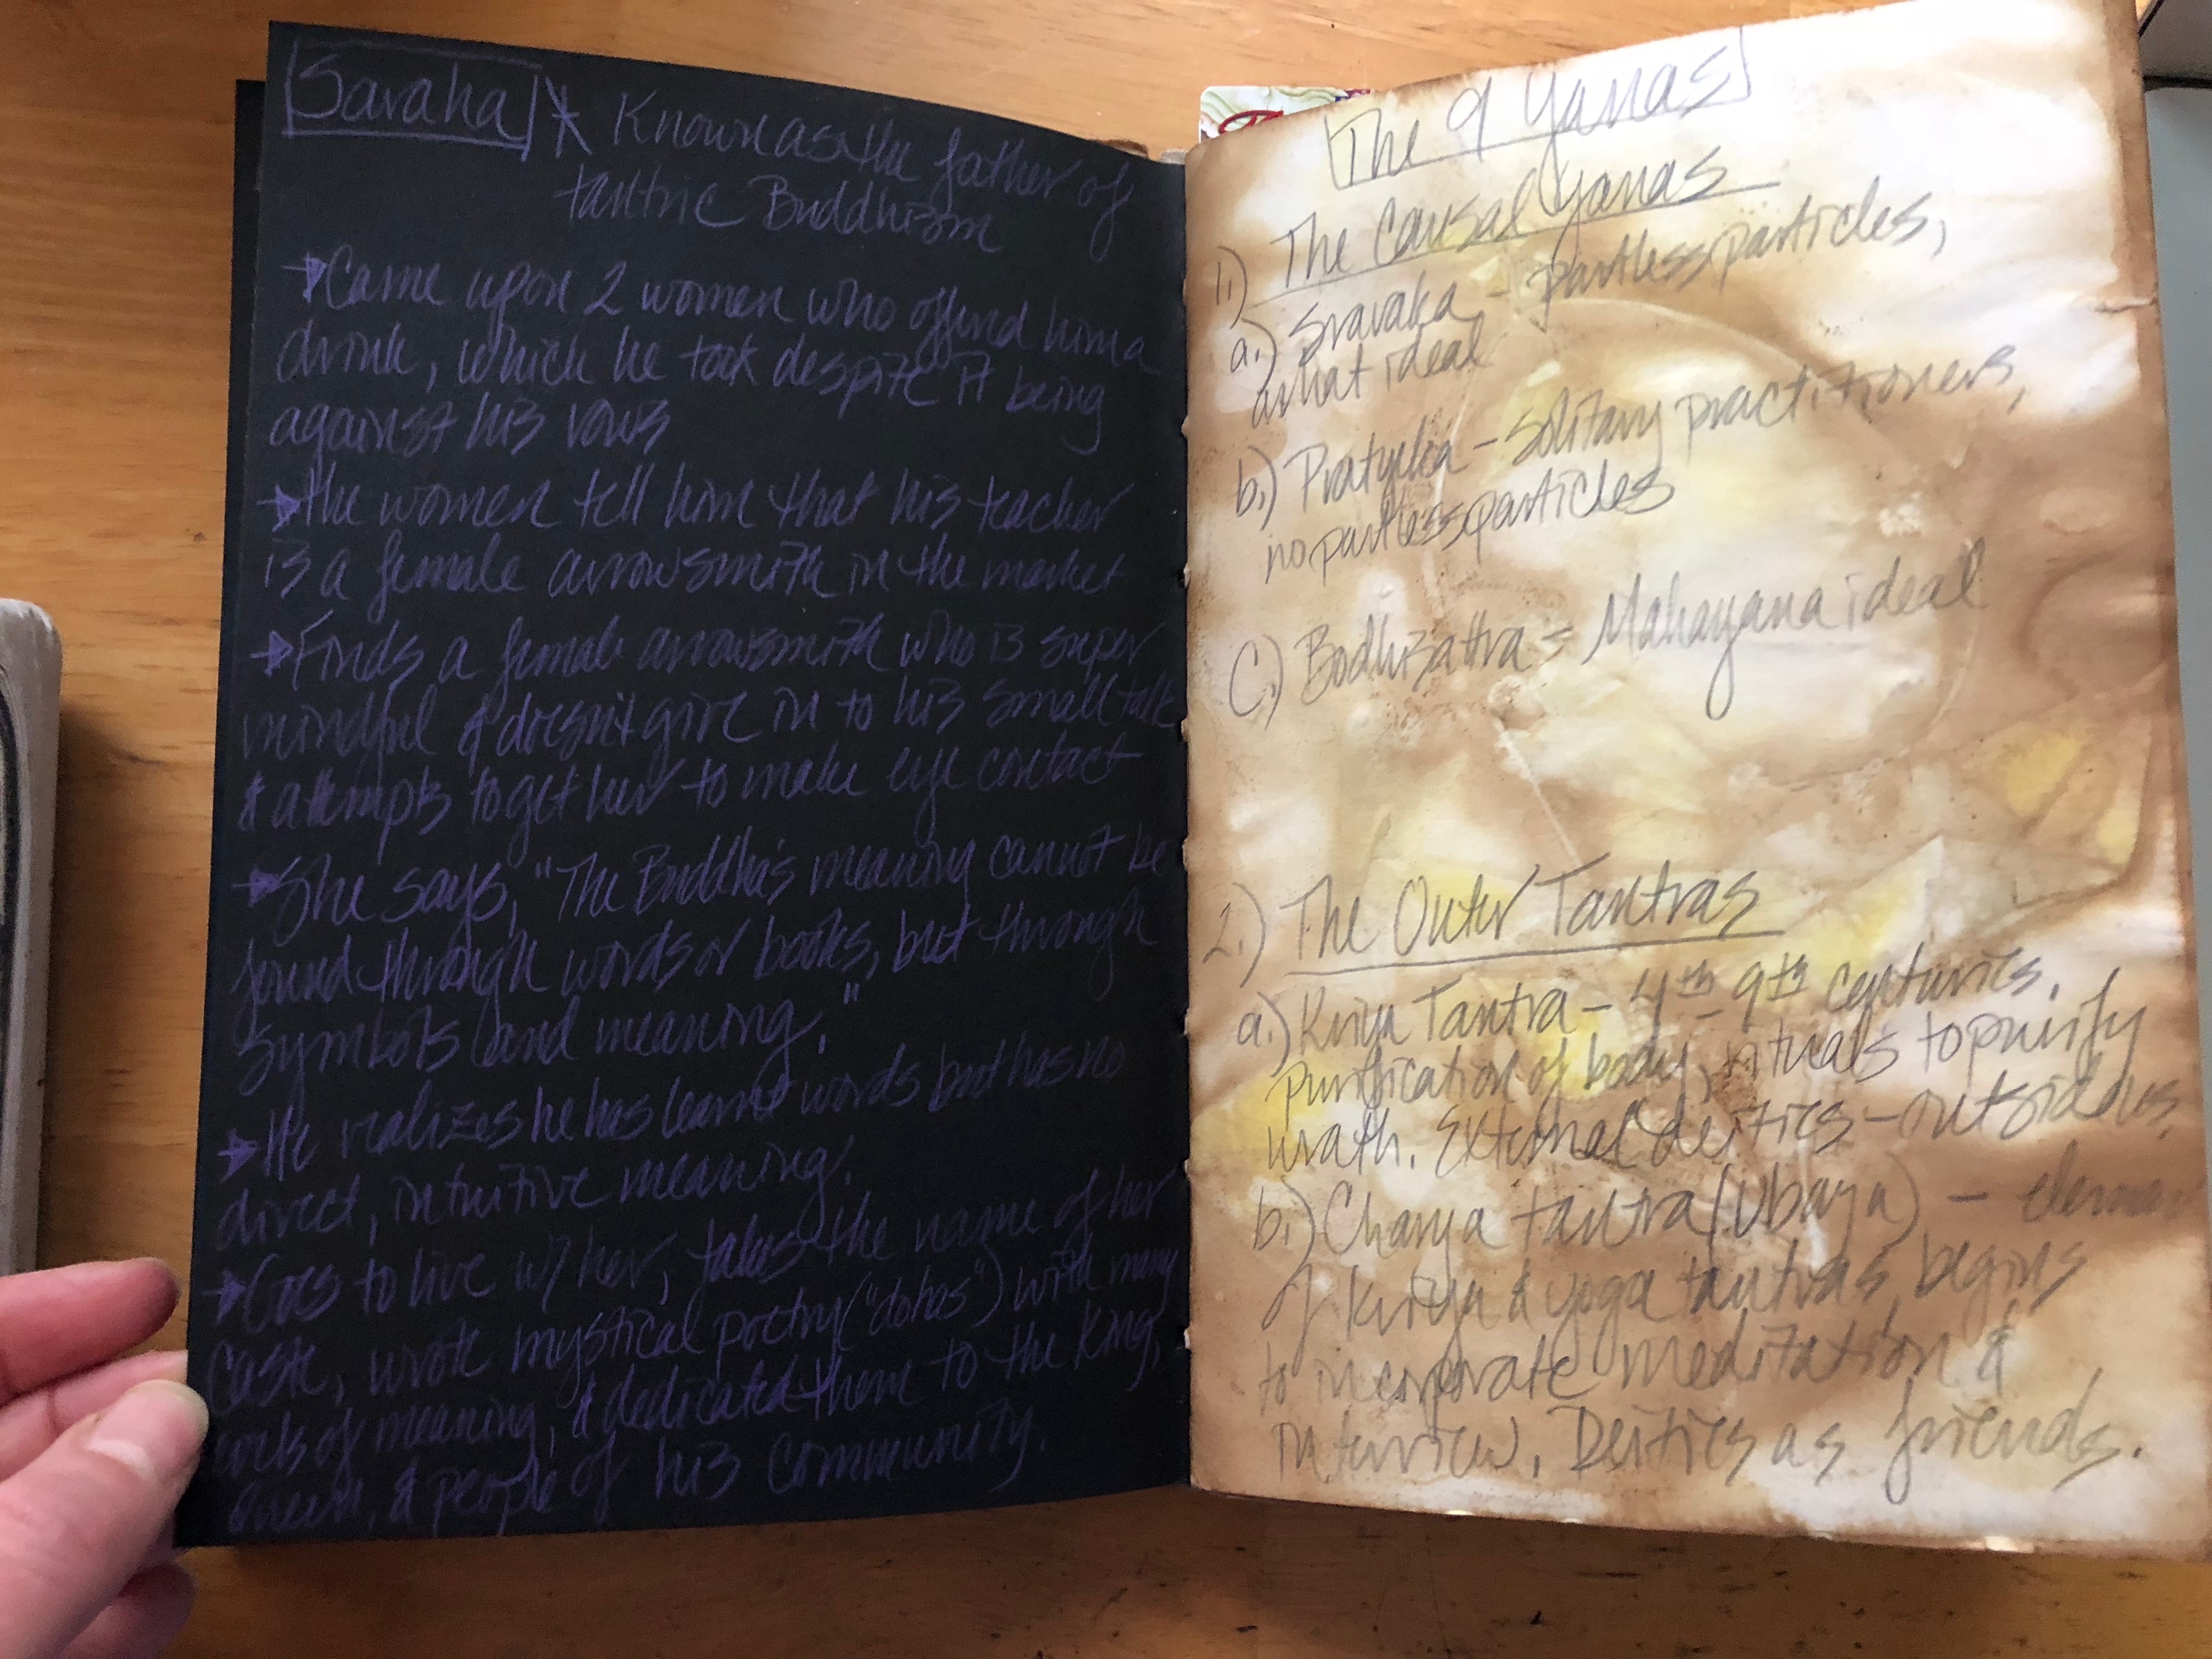 Saraha * Known as the father of
tantric Buddhism
→ Came upon 2 women who offered him a
drink, which he took despite it being
against his vows
→ The women tell him that his teacher
is a female arrowsmith in the market
→ Finds a female arrowsmith who is super
mindful & doesn't give in to his small talk
& attempts to get her to make eye contact
→ She says, "The Buddha's meaning cannot be
found through words or books, but through
symbols and meaning."
→ He realizes he has learned words but has no
direct, intuitive meaning.
→ Goes to live w/ her, takes the name of her
caste, wrote mystical poetry ("dohas") with many
levels of meaning, & dedicated them to the king,
queen, & people of his community.
The 9 Yanas
1.) The Causal Yanas
a.) Sravaka - partless particles,
arhat ideal
b.) Pratyeka - solitary practitioners,
no partless particles
C.) Bodhisattva - Mahayana ideal
2.) The Outer Tantras
a.) Kriya Tantra - 4th - 9th centuries.
purification of body, rituals to purify
wrath. External deities - outside us.
b.) Charya tantra (Ubaya) -
of Kriya & yoga tantras, begins
to incorporate meditation &
interview. Deities as friends.